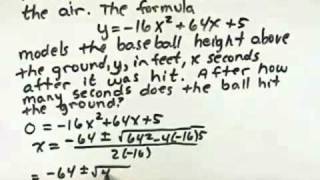 the air. The formula
y=-16x²+64x+5
models the baseball height above
the ground, y, in feet, x seconds
after it was hit. After how
many seconds does the ball hit
the ground?
0 = -16x²+64x+5
x = -64 ± √64²-4(-16)5
2(-16)
= -64 ± √4